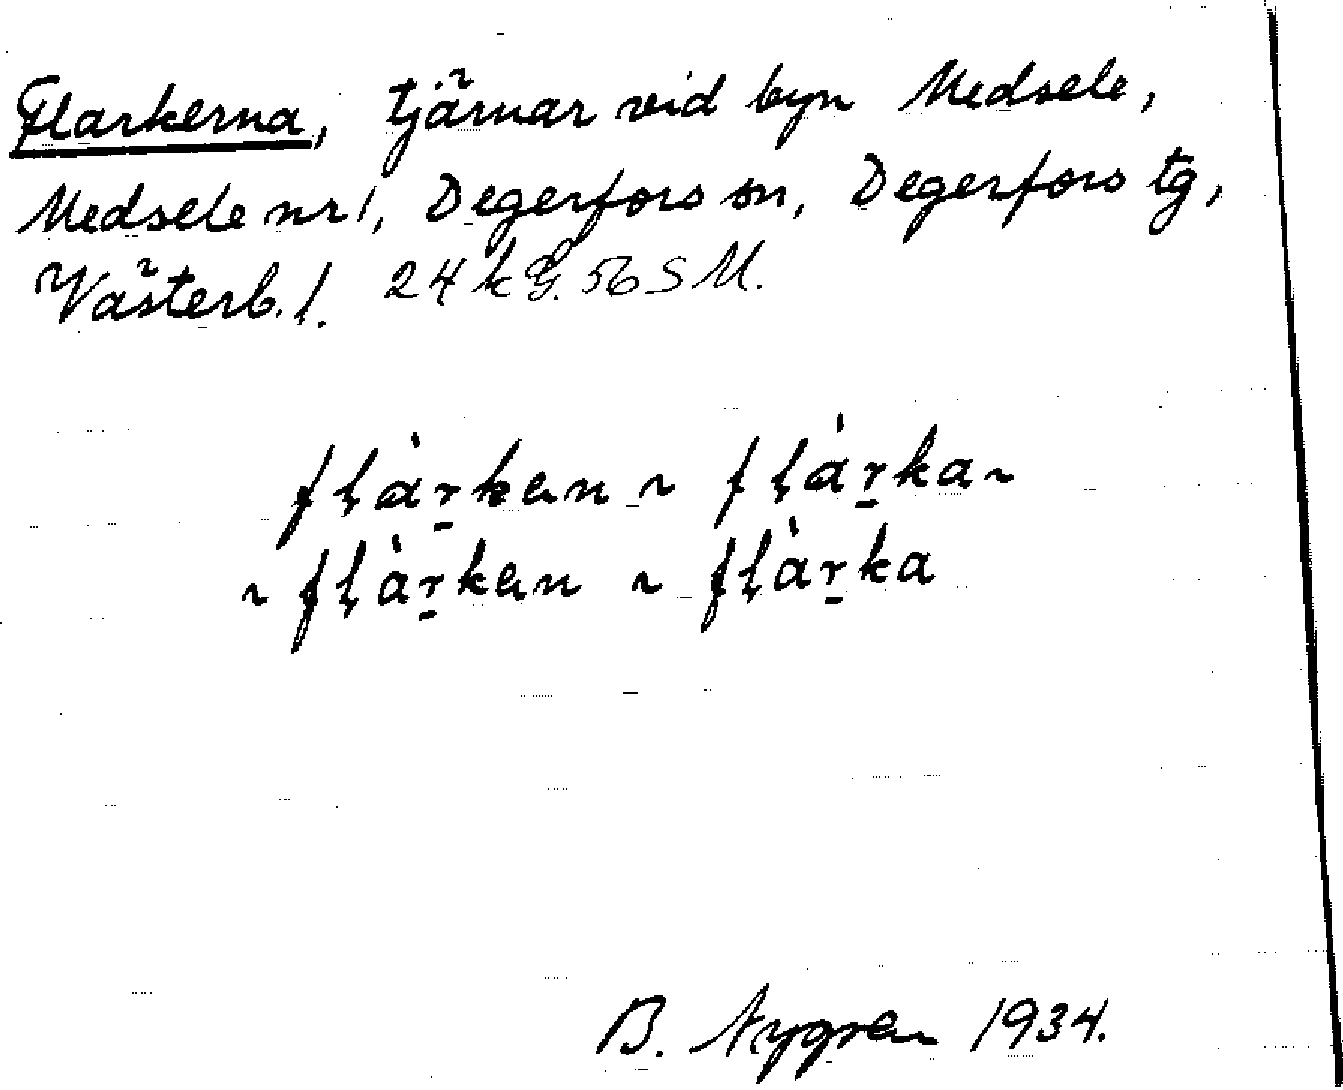 Flarkerna, tjärnar vid byn Medsele,
Medsele nr 1, Degerfors sn, Degerfors tg,
Västerb. l. 24 k G. 56 S M.
fḷàr̠kɑn ~ fḷàr̠ka ~
~ fḷàr̠kɑn ~ fḷàr̠ka
B. Nygren 1934.